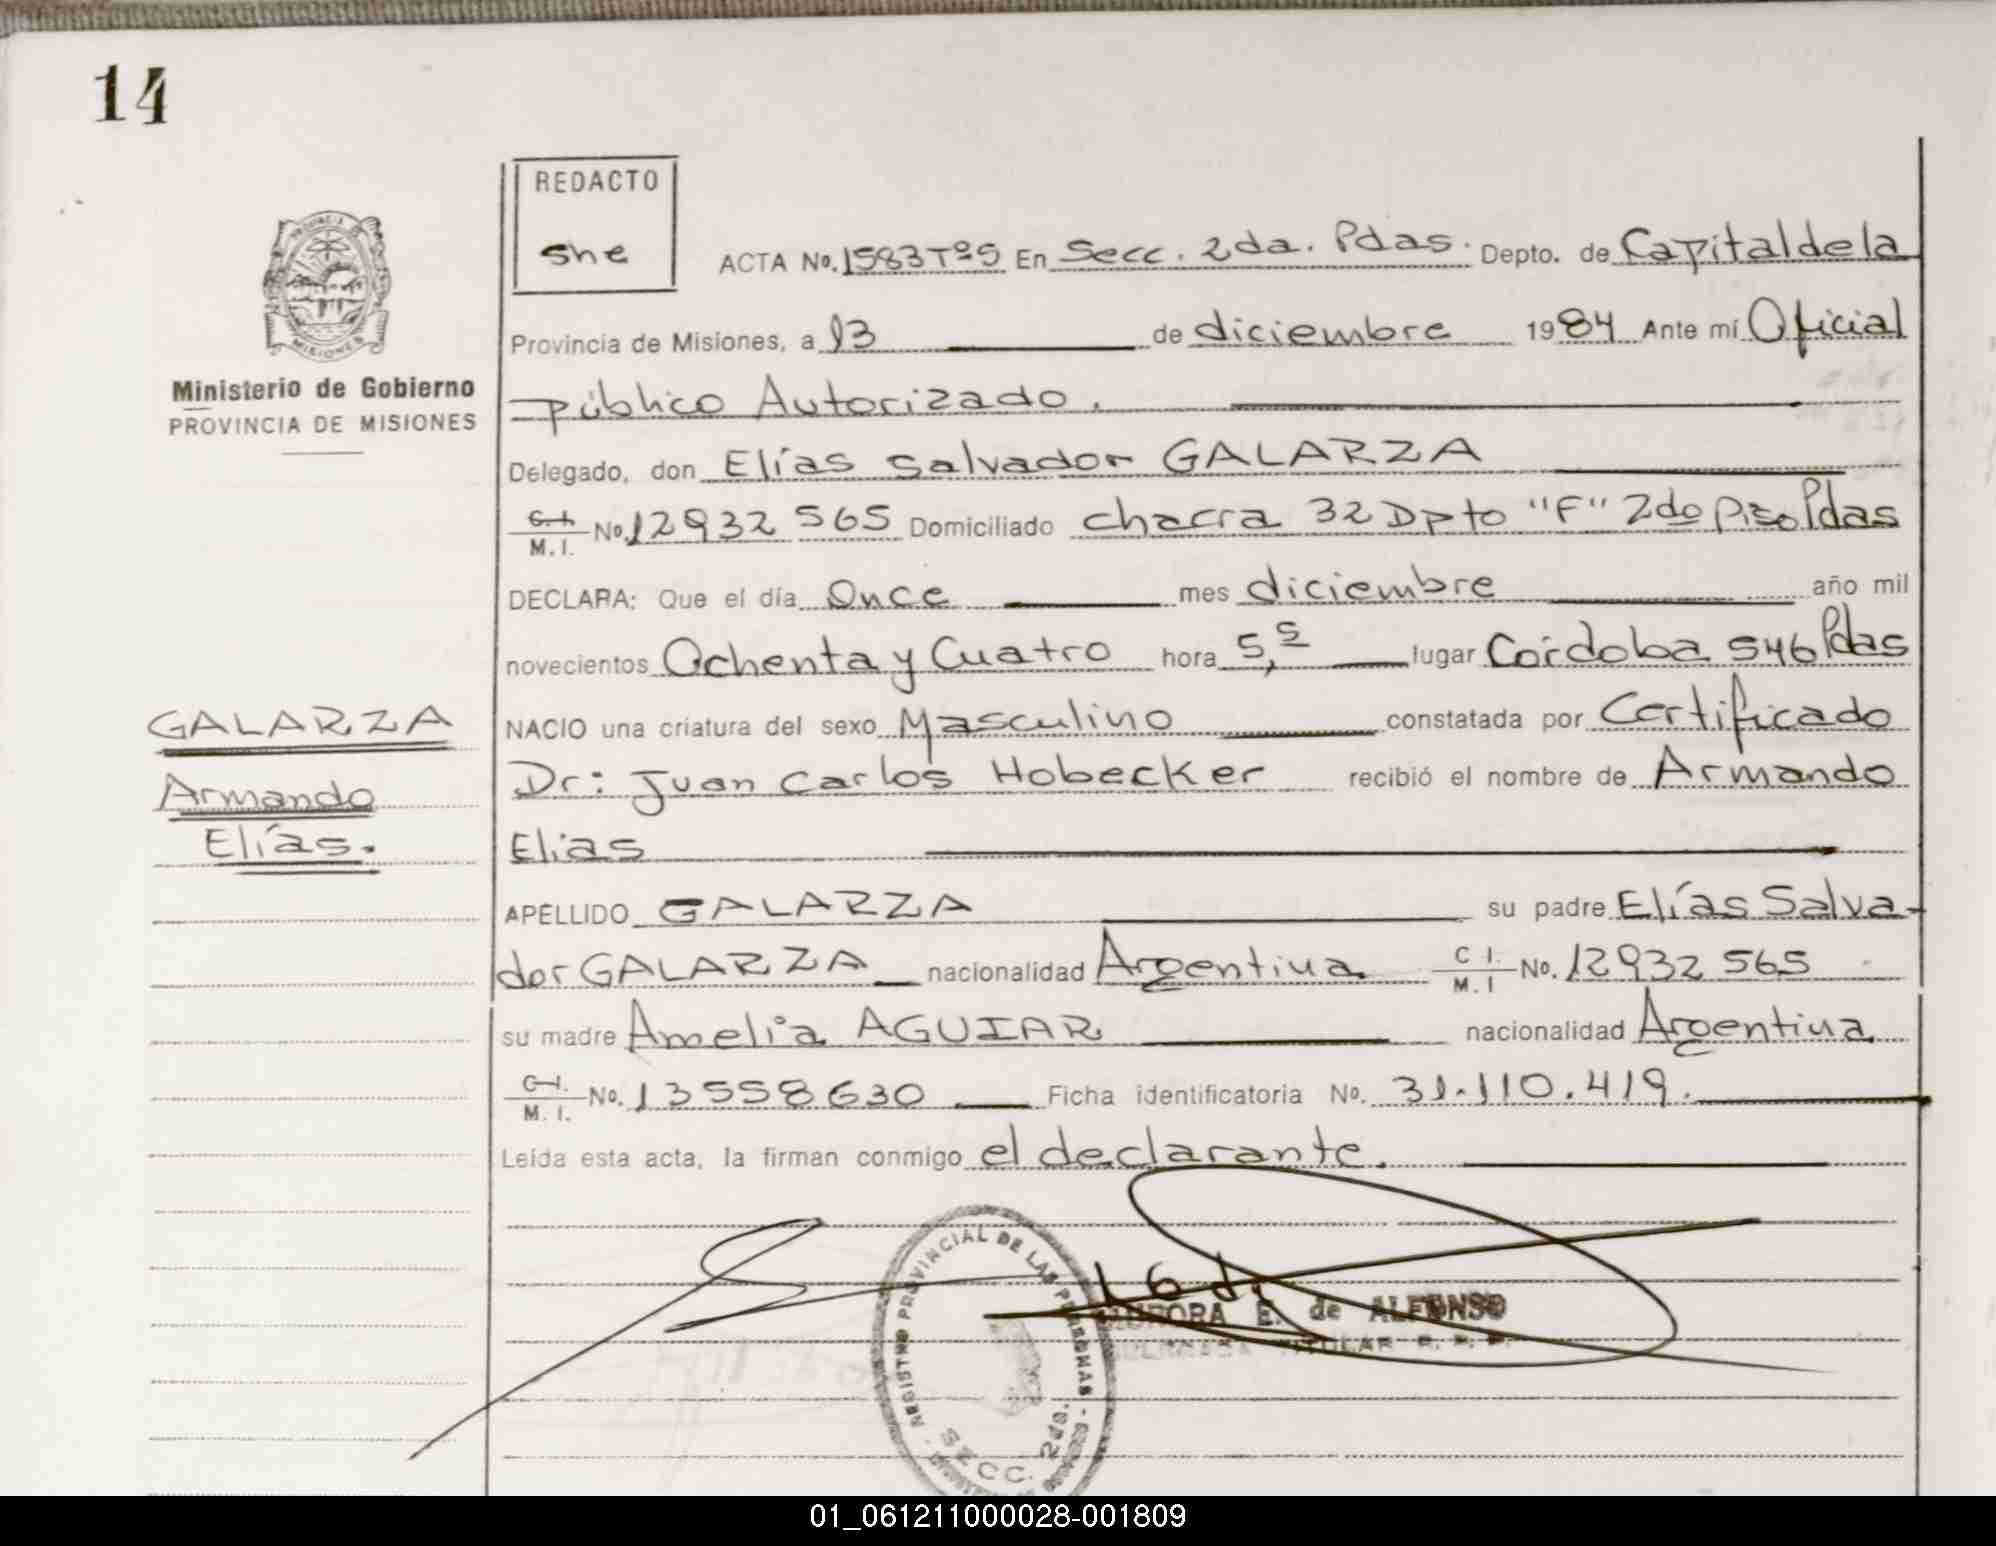 14
REDACTO
she
ACTA No. 1583 Tº 5 En Secc. 2da. Pdas. Depto. de Capital de la
Provincia de Misiones, a 13 de diciembre 1984 Ante mí Oficial
público Autorizado.
Delegado, don Elías Salvador GALARZA
C.I. M.I. No. 12932565 Domiciliado chacra 32 Dpto "F" 2do Piso Pdas
DECLARA: Que el día Once mes diciembre año mil
novecientos Ochenta y Cuatro hora 5,5 lugar Córdoba 546 Pdas
NACIO una criatura del sexo Masculino constatada por Certificado
Dr: Juan Carlos Hobecker recibió el nombre de Armando
Elias
APELLIDO GALARZA su padre Elías Salva-
dor GALARZA nacionalidad Argentina C I. M. I No. 12932565
su madre Amelia AGUIAR nacionalidad Argentina
C.I. M. I. No. 13558630 Ficha identificatoria No. 31.110.419.
Leída esta acta, la firman conmigo el declarante.
PROVINCIA DE
MISIONES
Ministerio de Gobierno
PROVINCIA DE MISIONES
GALARZA
Armando
Elías.
REGISTRO PROVINCIAL DE LAS PERSONAS
SECC. 2da.
E. de ALFONSO
TITULAR
01_061211000028-001809